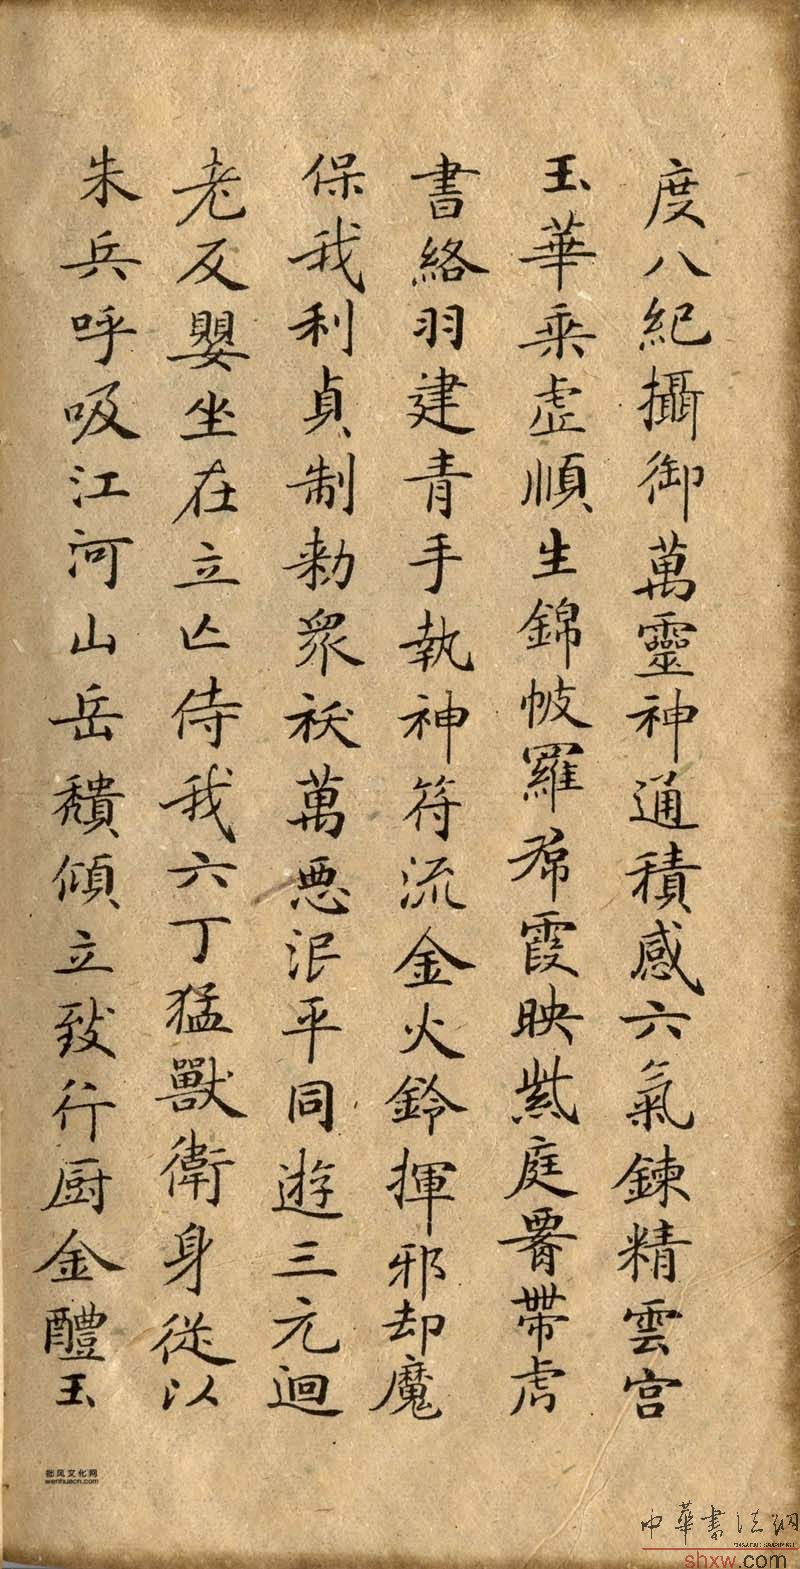 度八紀攝御萬靈神通積感六氣鍊精雲宮
玉華乘虛順生錦帔羅帬霞映紫庭腰帶虎
書絡羽建青手執神符流金火鈴揮邪却魔
保我利貞制勑衆祅萬惡泯平同遊三元迴
老反嬰坐在立亾侍我六丁猛獸衛身從以
朱兵呼吸江河山岳穨傾立致行厨金醴玉
拙风文化网
wenhuacn.com
中華書法網
shxw.com